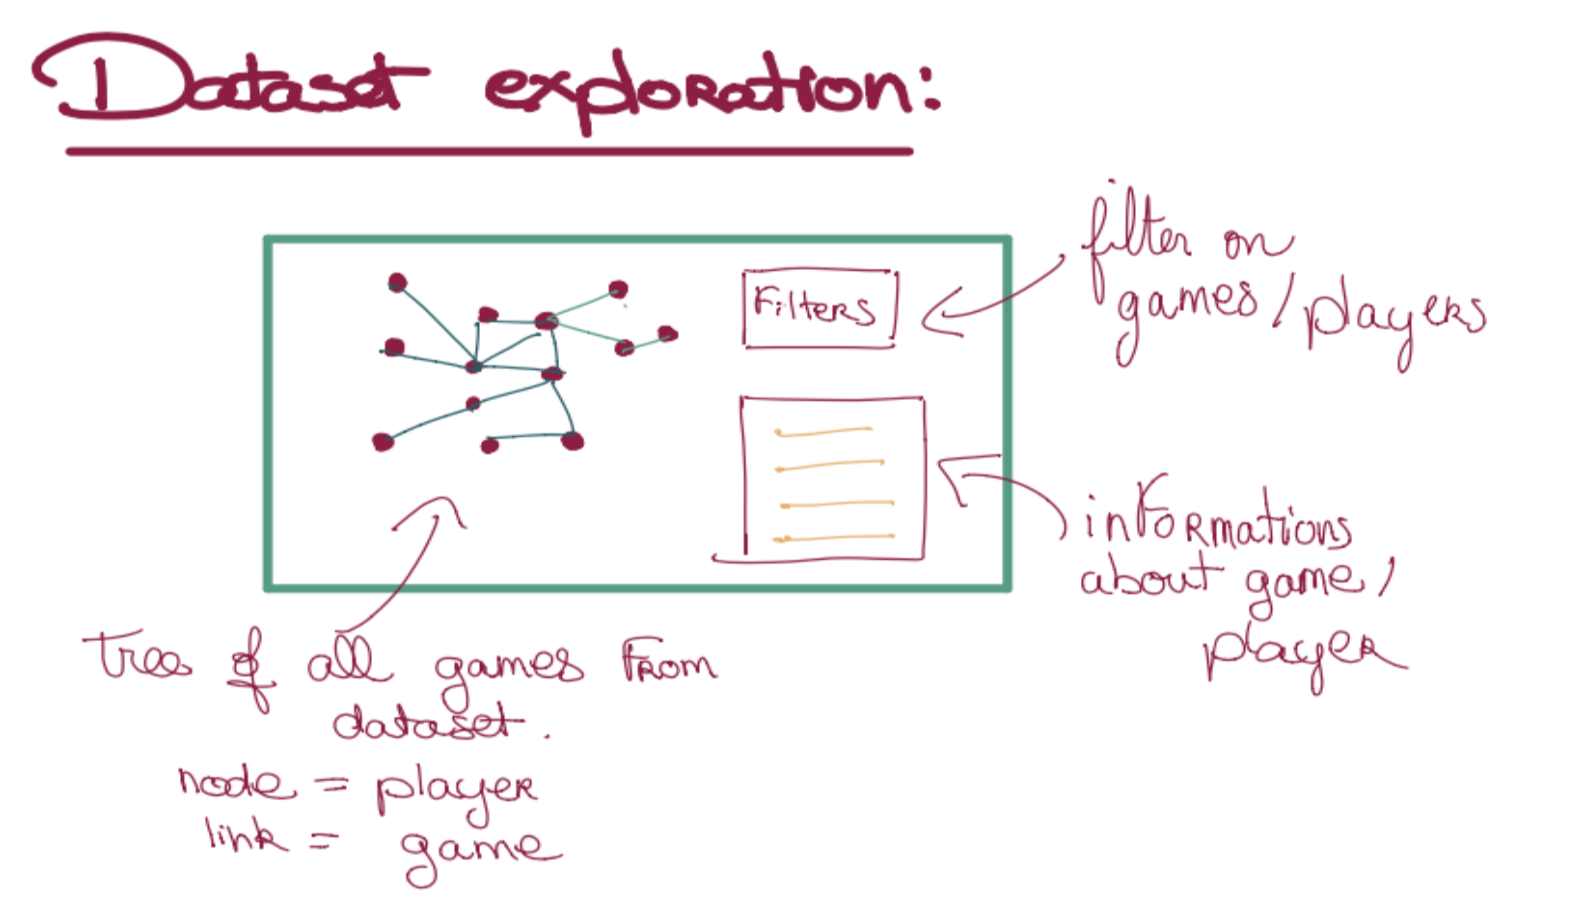 Dataset exploration:
Filters
filter on
games/players
informations
about game/
player
tree of all games from
dataset.
node = player
link = game